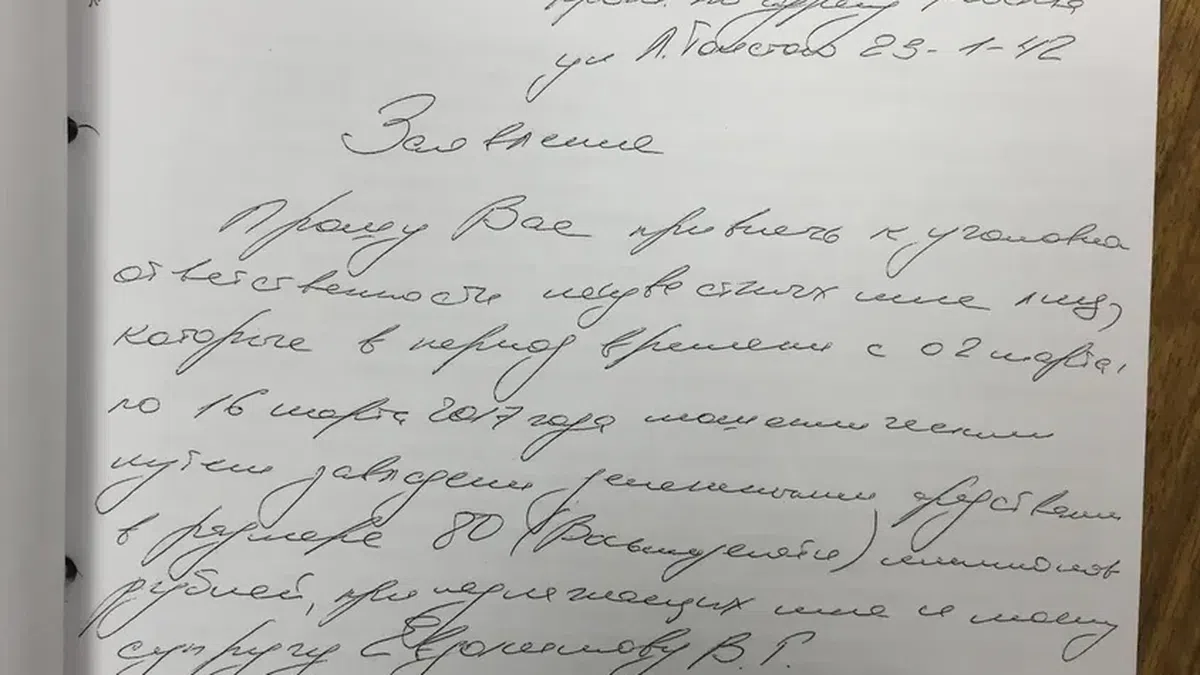 прож. по адресу г. Москва
ул Л. Толстого 23-1-42
Заявление
Прошу Вас привлечь к уголовна
ответственности неизвестных мне лиц,
которые в период времени с 02 марта
по 16 марта 2017 года мошенническим
путем завладели денежными средствами
в размере 80 (Восьмидесяти) миллионов
рублей, принадлежащих мне и моему
супругу В. Г.